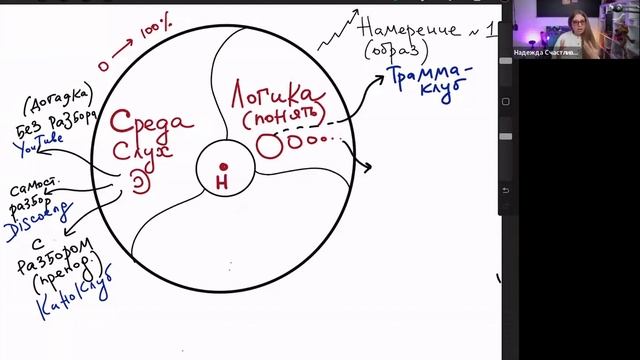 0 → 100%
Намерение ~ 1
(образ)
Надежда Счастлив...
Грамма-
клуб
Логика
(понять)
(догадка)
без разбора
YouTube
Среда
Слух
Э
Н
самост.
разбор
Discoeng
с
разбором
(препод.)
КиноКлуб